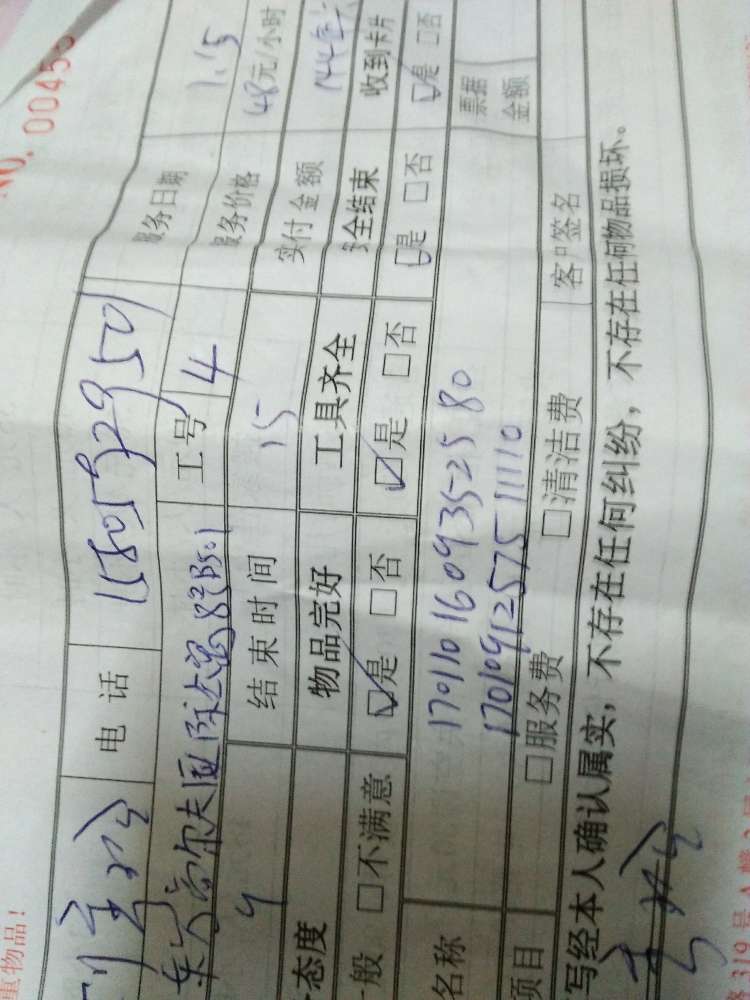 重物品！
NO. 0045
电话 15805932950 服务日期 1.15
工号 4 服务价格 48元/小时
9 结束时间 15 实付金额 144
态度 物品完好 工具齐全 安全结束 收到卡片
般 □不满意 ☑是 □否 ☑是 □否 ☑是 □否 ☑是 □否
名称 1701101609352580 票据
170109125751110 金额
项目 □服务费 □清洁费 客户签名
写经本人确认属实，不存在任何纠纷，不存在任何物品损坏。
319号